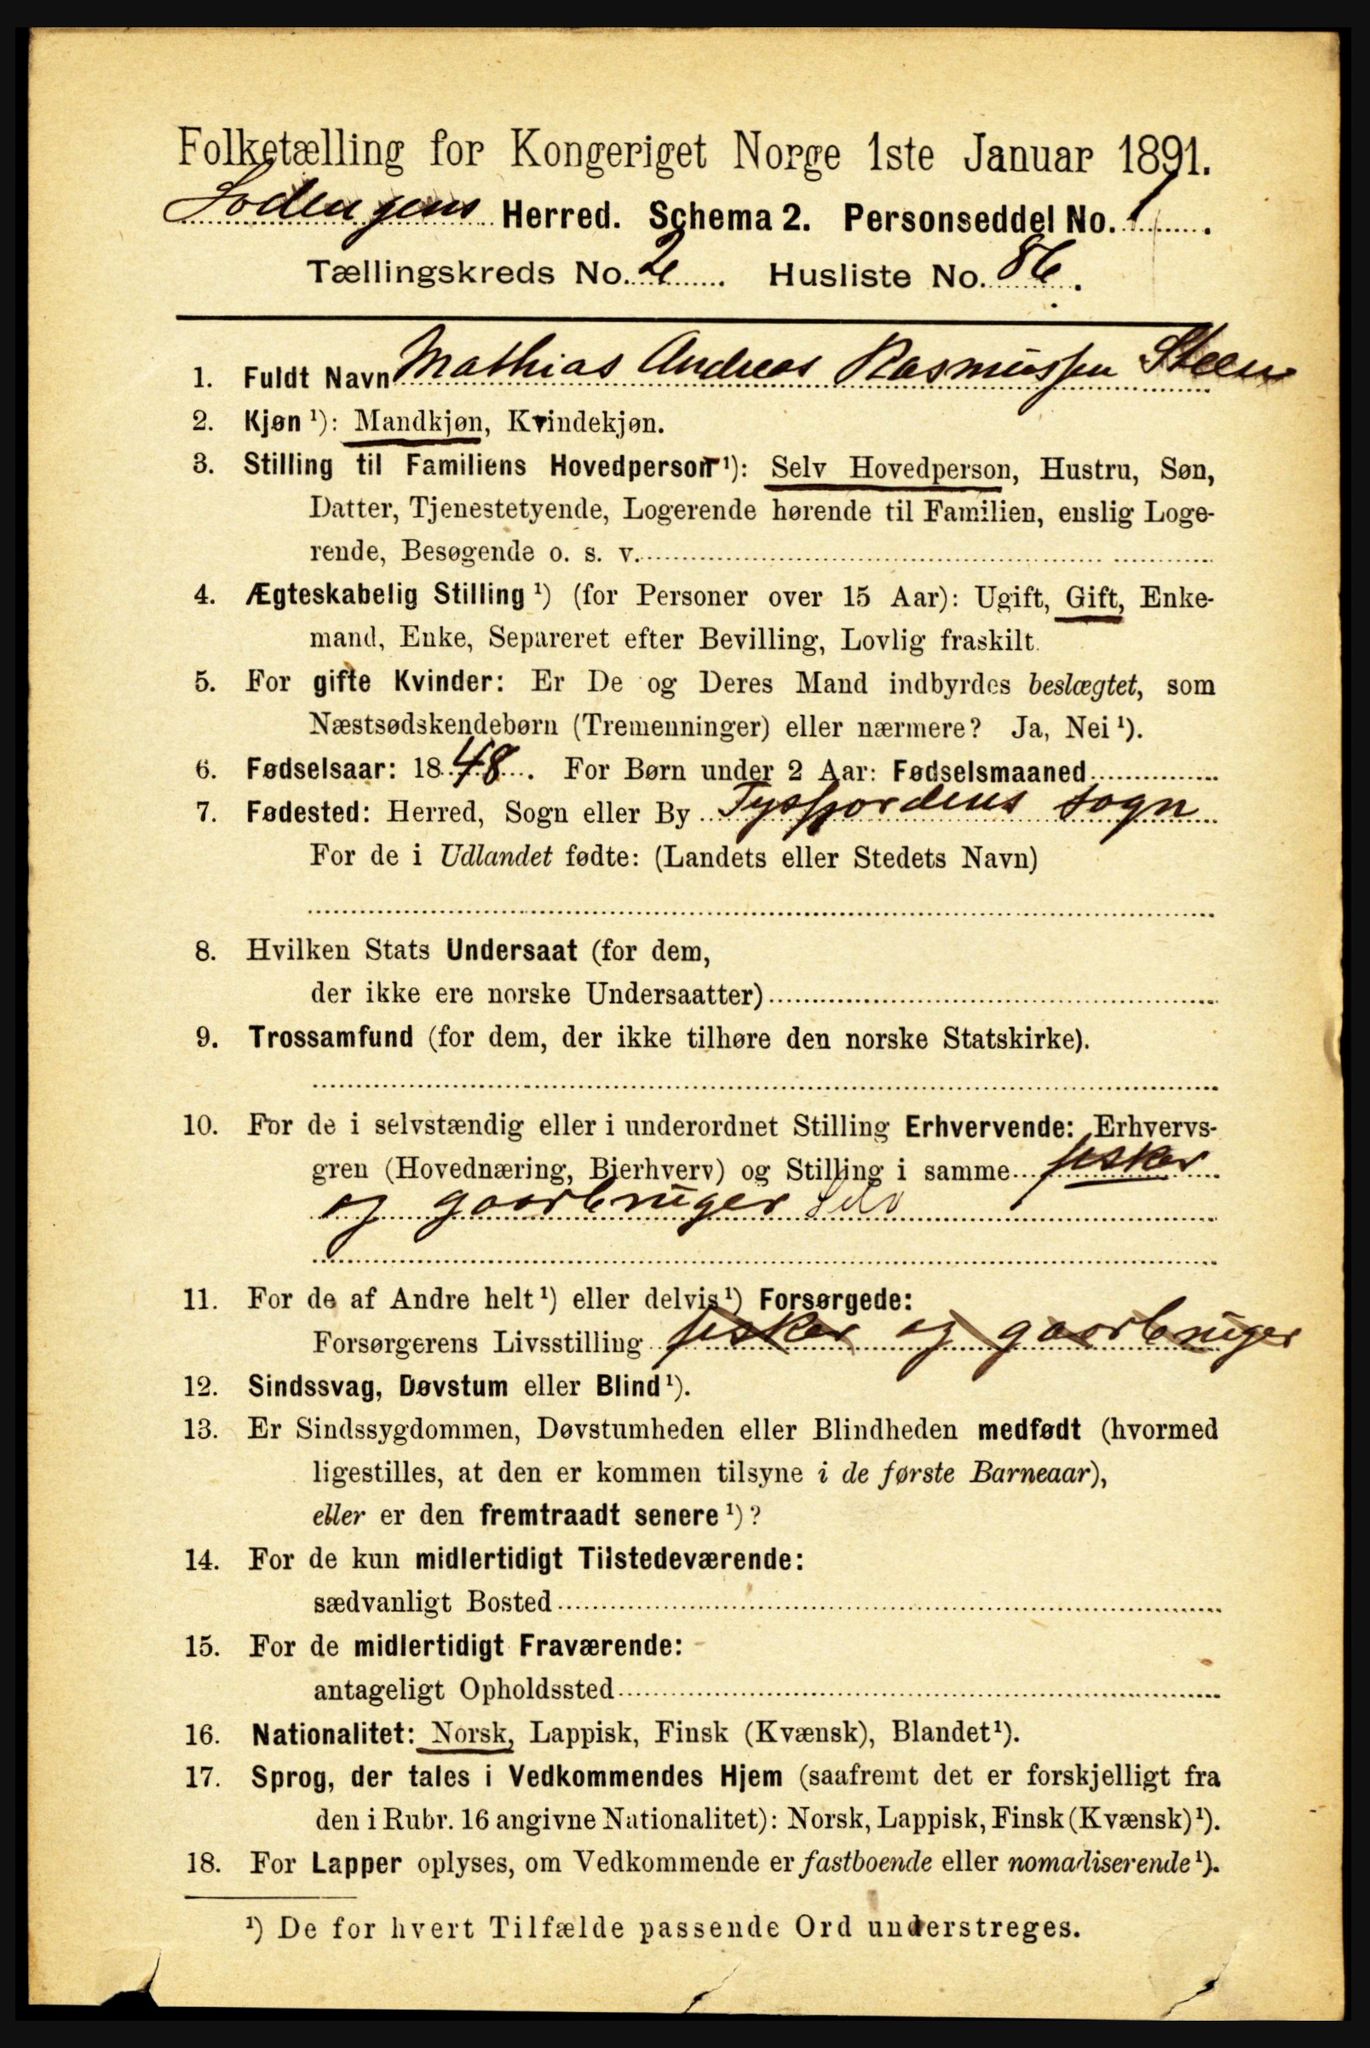 Folketælling for Kongeriget Norge 1ste Januar 1891.
Lodengens Herred. Schema 2. Personseddel No. 1.
Tællingskreds No. 2. Husliste No. 86.
1. Fuldt Navn Mathias Andreas Rasmussen Steen
2. Kjøn ¹): Mandkjøn, Kvindekjøn.
3. Stilling til Familiens Hovedperson ¹): Selv Hovedperson, Hustru, Søn,
Datter, Tjenestetyende, Logerende hørende til Familien, enslig Loge-
rende, Besøgende o. s. v.
4. Ægteskabelig Stilling ¹) (for Personer over 15 Aar): Ugift, Gift, Enke-
mand, Enke, Separeret efter Bevilling, Lovlig fraskilt.
5. For gifte Kvinder: Er De og Deres Mand indbyrdes beslægtet, som
Næstsødskendebørn (Tremenninger) eller nærmere? Ja, Nei ¹).
6. Fødselsaar: 1848. For Børn under 2 Aar: Fødselsmaaned
7. Fødested: Herred, Sogn eller By Tysfjordens sogn
For de i Udlandet fødte: (Landets eller Stedets Navn)
8. Hvilken Stats Undersaat (for dem,
der ikke ere norske Undersaatter)
9. Trossamfund (for dem, der ikke tilhøre den norske Statskirke).
10. For de i selvstændig eller i underordnet Stilling Erhvervende: Erhvervs-
gren (Hovednæring, Bierhverv) og Stilling i samme fisker
og gaarbruger Selv
11. For de af Andre helt ¹) eller delvis ¹) Forsørgede:
Forsørgerens Livsstilling fisker og gaarbruger
12. Sindssvag, Døvstum eller Blind ¹).
13. Er Sindssygdommen, Døvstumheden eller Blindheden medfødt (hvormed
ligestilles, at den er kommen tilsyne i de første Barneaar),
eller er den fremtraadt senere ¹)?
14. For de kun midlertidigt Tilstedeværende:
sædvanligt Bosted
15. For de midlertidigt Fraværende:
antageligt Opholdssted
16. Nationalitet: Norsk, Lappisk, Finsk (Kvænsk), Blandet ¹).
17. Sprog, der tales i Vedkommendes Hjem (saafremt det er forskjelligt fra
den i Rubr. 16 angivne Nationalitet): Norsk, Lappisk, Finsk (Kvænsk) ¹).
18. For Lapper oplyses, om Vedkommende er fastboende eller nomadiserende ¹).
¹) De for hvert Tilfælde passende Ord understreges.